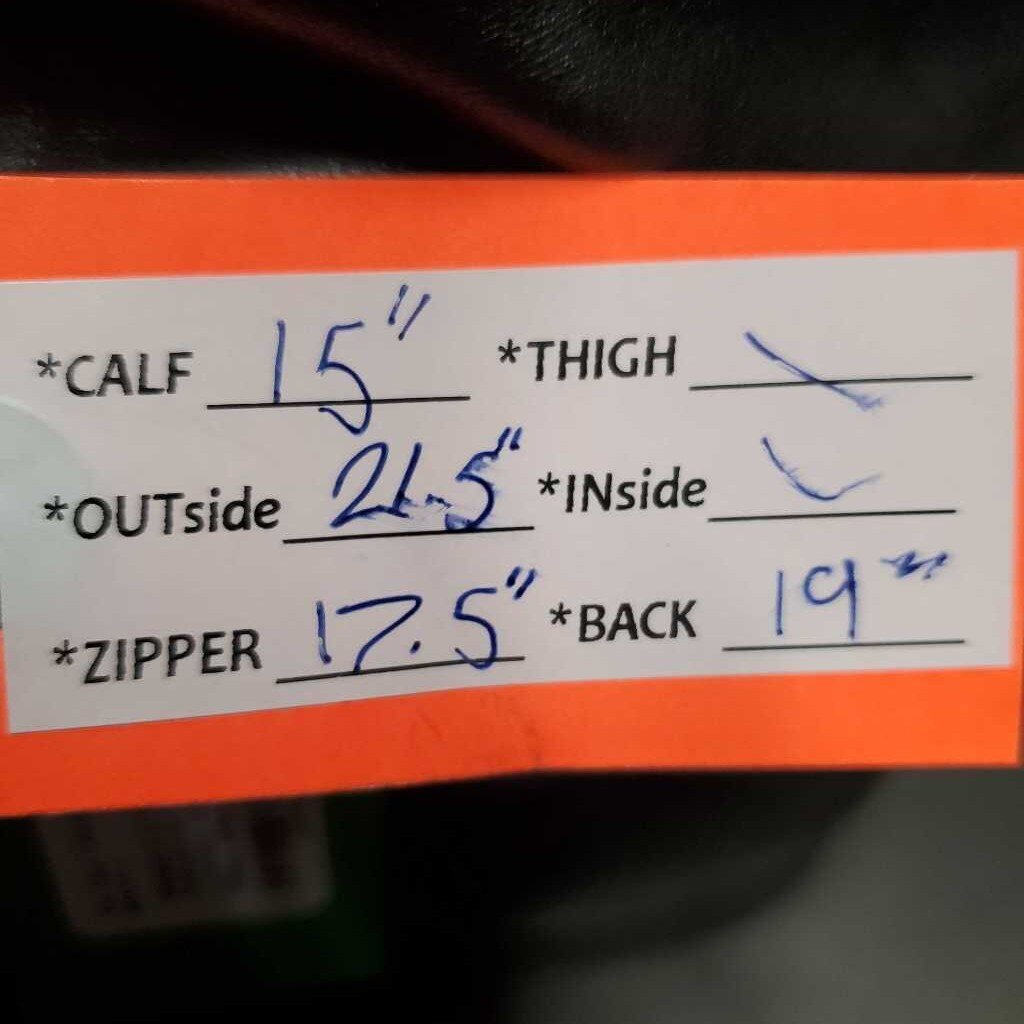 *CALF 15" *THIGH
*OUTside 21.5" *INside
*ZIPPER 17.5" *BACK 19"